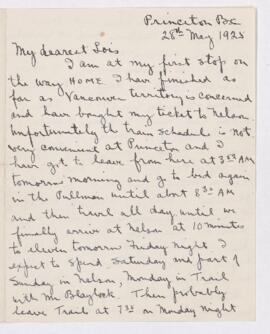 Princeton B.C
28th May 1925
My dearest Lois
I am at my first stop on
the way HOME. I have finished as
far as Vancouver territory is concerned
and have bought my ticket to Nelson.
Unfortunately the train schedule is not
very convenient at Princeton and I
have got to leave from here at 3 AM
tomorrow morning and go to bed again
in the Pullman until about 8 30 AM
and then travel all day until we
finally arrive at Nelson at 10 minutes
to eleven tomorrow Friday night. I
expect to spend Saturday and part of
Sunday in Nelson, Monday in Trail
with Mr Blaylock. Then probably
leave Trail at 7 on Monday night